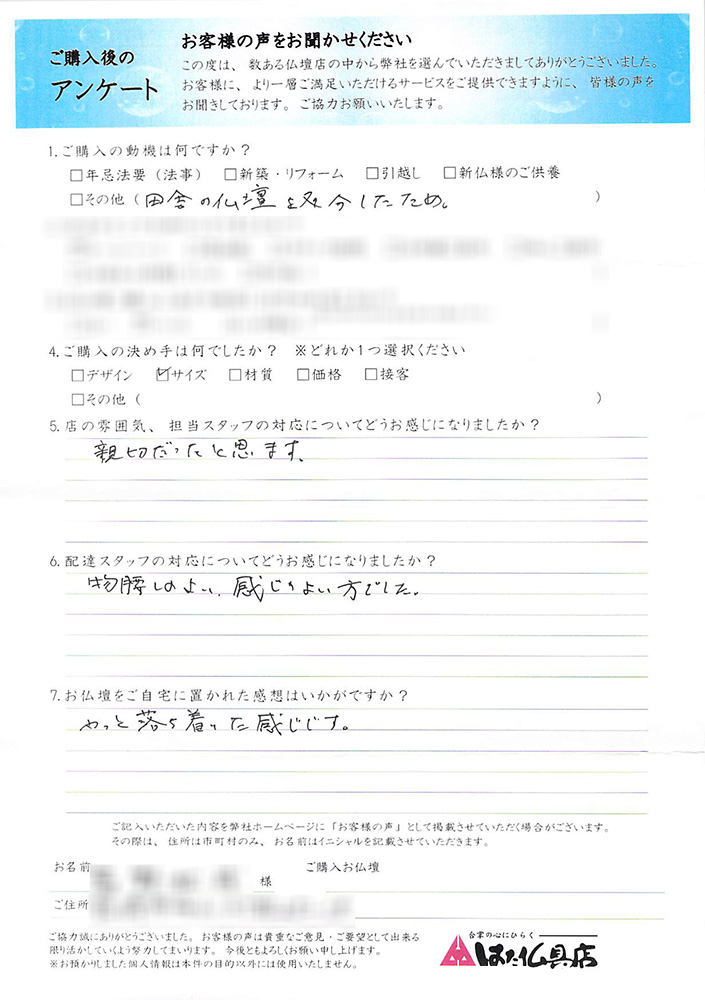 ご購入後の
アンケート
お客様の声をお聞かせください
この度は、数ある仏壇店の中から弊社を選んでいただきましてありがとうございました。
お客様に、より一層ご満足いただけるサービスをご提供できますように、皆様の声を
お聞きしております。ご協力お願いいたします。
1.ご購入の動機は何ですか？
□年忌法要（法事） □新築・リフォーム □引越し □新仏様のご供養
□その他（田舎の仏壇を処分したため。）
4.ご購入の決め手は何でしたか？ ※どれか1つ選択ください
□デザイン ☑サイズ □材質 □価格 □接客
□その他（ ）
5.店の雰囲気、担当スタッフの対応についてどうお感じになりましたか？
親切だったと思います。
6.配達スタッフの対応についてどうお感じになりましたか？
物腰しのよい、感じのよい方でした。
7.お仏壇をご自宅に置かれた感想はいかがですか？
やっと落ち着いた感じです。
ご記入いただいた内容を弊社ホームページに「お客様の声」として掲載させていただく場合がございます。
その際は、住所は市町村のみ、お名前はイニシャルを記載させていただきます。
お名前 様 ご購入お仏壇
ご住所
ご協力誠にありがとうございました。お客様の声は貴重なご意見・ご要望として出来る
限り活かしていくよう努力してまいります。今後ともよろしくお願い申し上げます。
※お預かりしました個人情報は本件の目的以外には使用いたしません。
合掌の心にひらく
はた仏具店